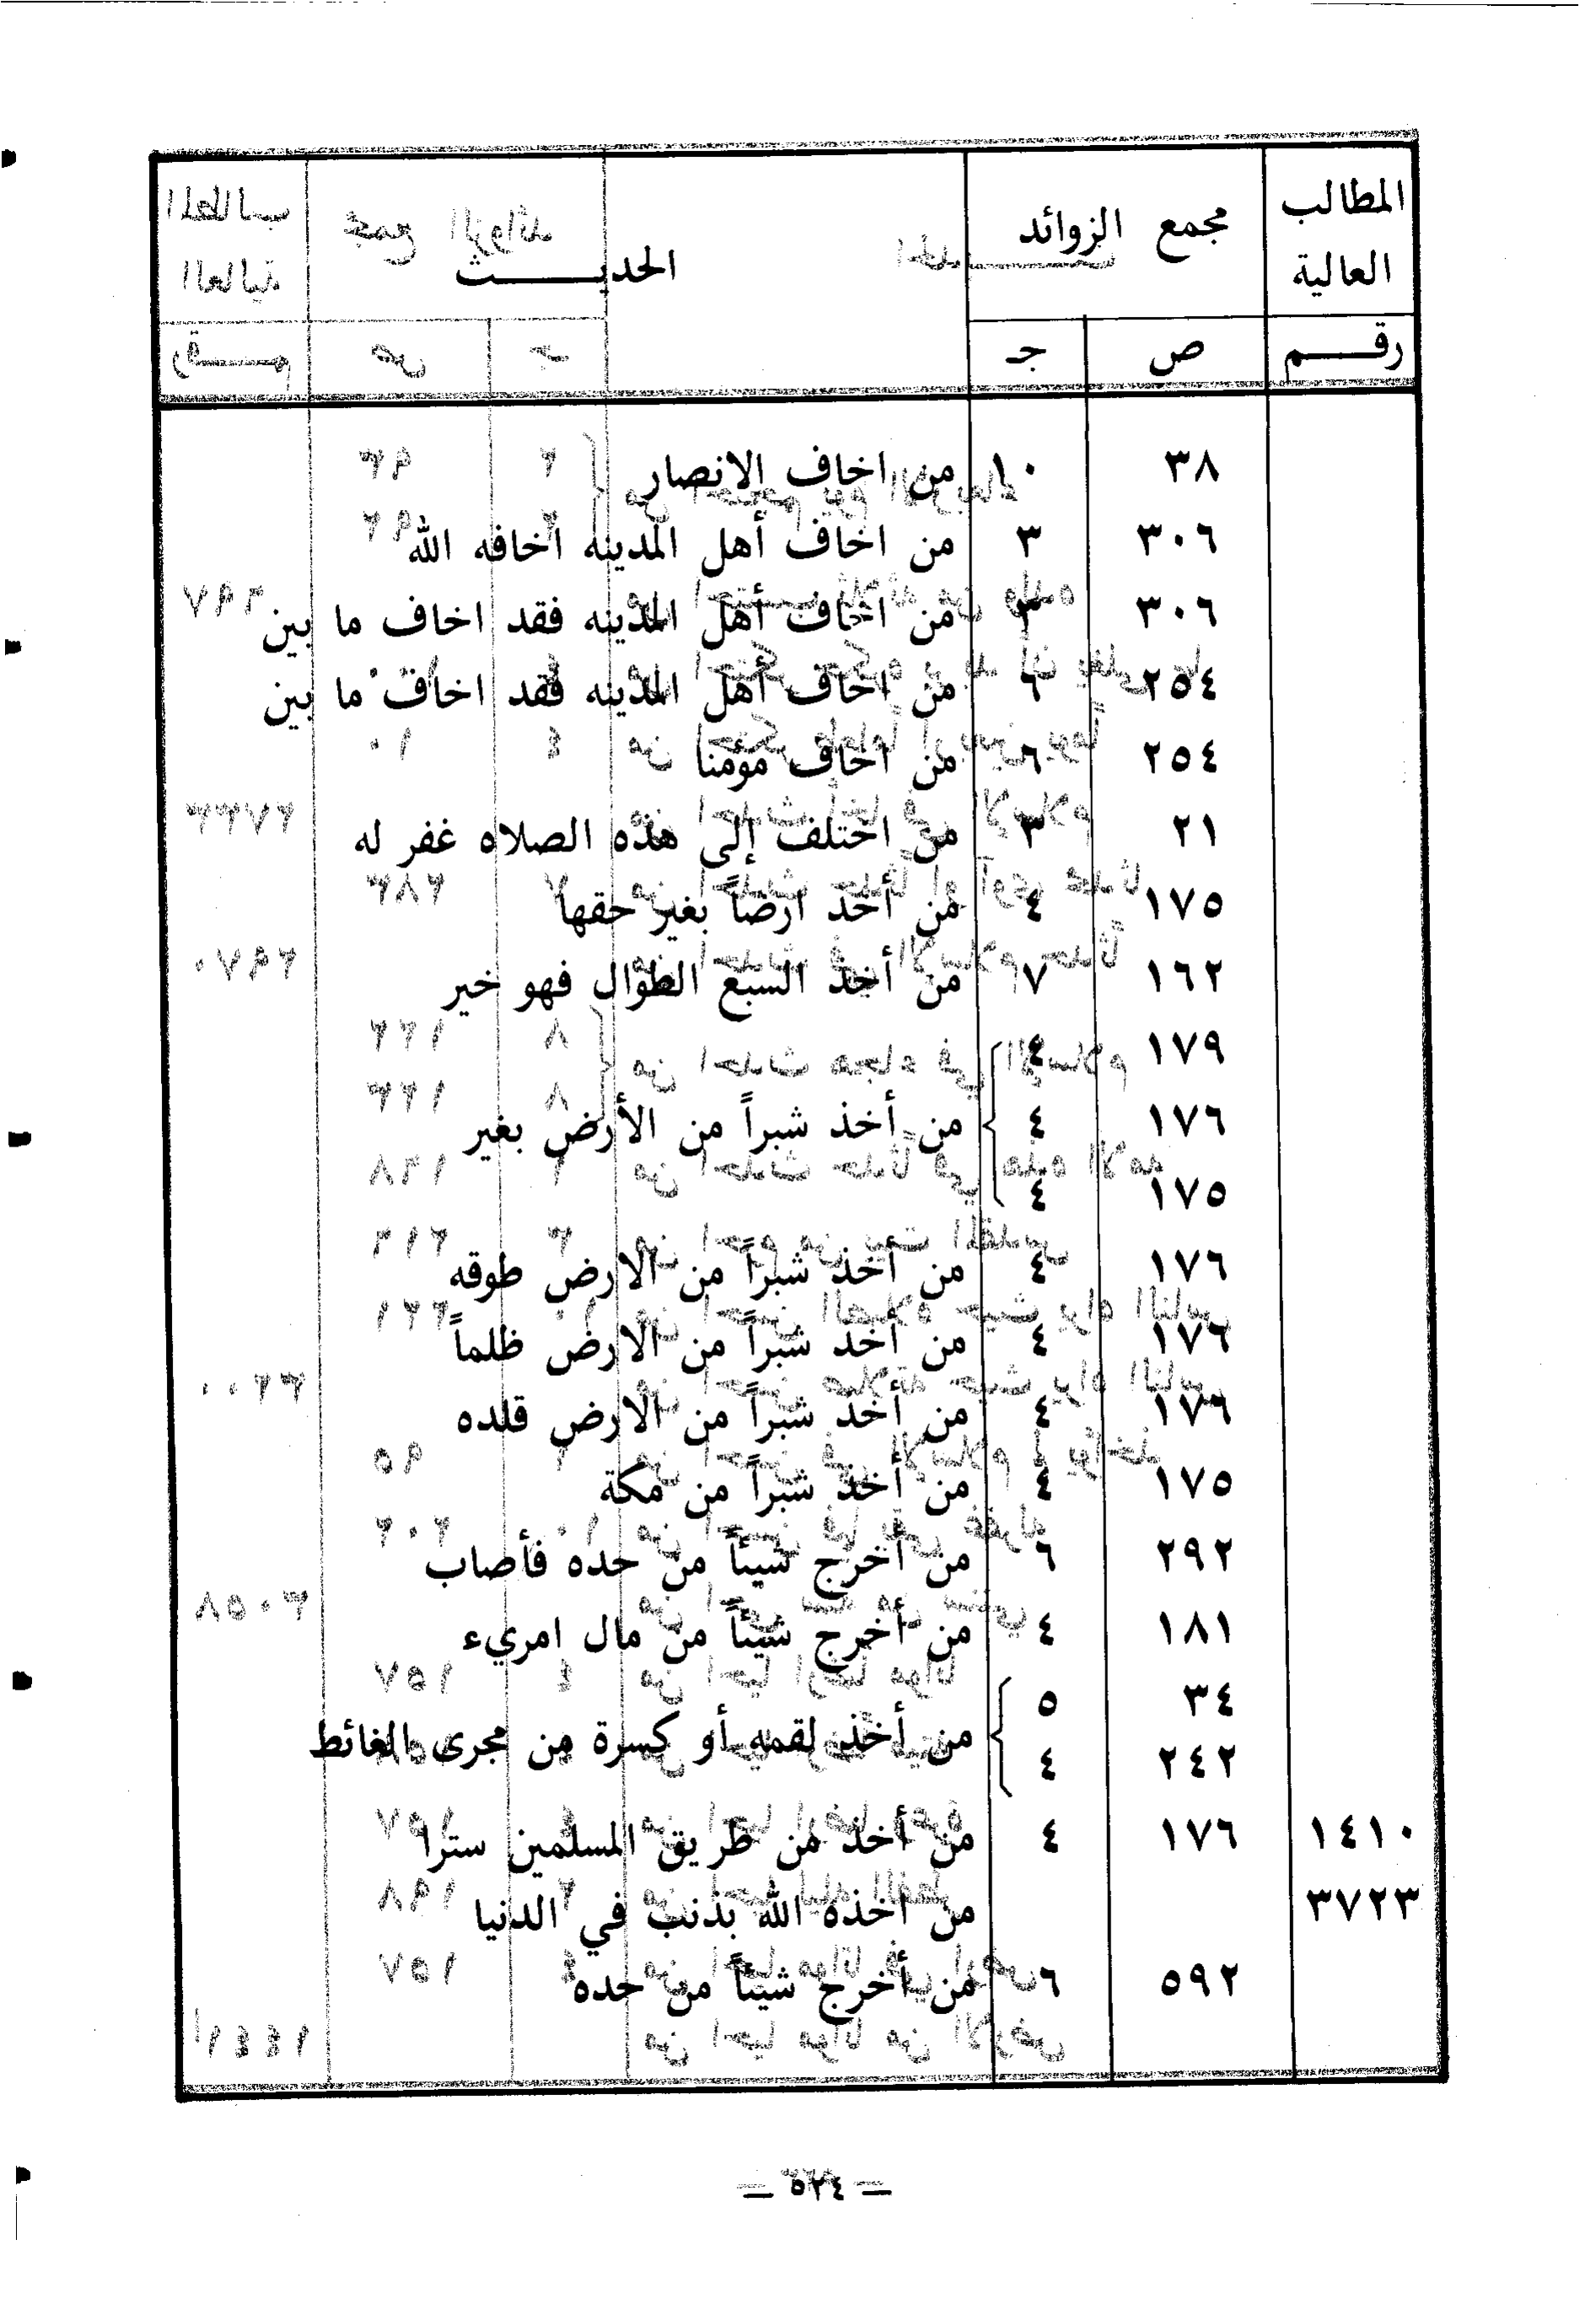 المطالب العالية | مجمع الزوائد | الحديـــــث
رقـــم | ص | جـ
٣٨ | ١٠ | من اخاف الانصار
٣٠٦ | ٣ | من اخاف أهل المدينه اخافه الله
٣٠٦ | ٣ | من اخاف أهل المدينه فقد اخاف ما بين
٢٥٤ | ٦ | من اخاف أهل المدينه فقد اخاف ما بين
٢٥٤ | ٦ | من اخاف مؤمنا
٢١ | ٣ | من اختلف إلى هذه الصلاه غفر له
١٧٥ | ٤ | من أخذ ارضاً بغير حقها
١٦٢ | ٧ | من أخذ السبع الطوال فهو خير
١٧٩ | ٤
١٧٦ | ٤ | من أخذ شبراً من الأرض بغير
١٧٥ | ٤
١٧٦ | ٤ | من أخذ شبراً من الارض طوقه
١٧٦ | ٤ | من أخذ شبراً من الارض ظلماً
١٧٦ | ٤ | من أخذ شبراً من الارض قلده
١٧٥ | ٤ | من أخذ شبراً من مكة
٢٩٢ | ٦ | من أخرج شيئاً من حده فأصاب
١٨١ | ٤ | من أخرج شيئاً من مال امريء
٣٤ | ٥
من أخذ لقمه أو كسرة من مجرى الغائط
٢٤٢ | ٤
١٤١٠ | ١٧٦ | ٤ | من أخذ من طريق المسلمين سترا
٣٧٢٣ | من أخذه الله بذنب في الدنيا
٥٩٢ | ٦ | من أخرج شيئاً من حده